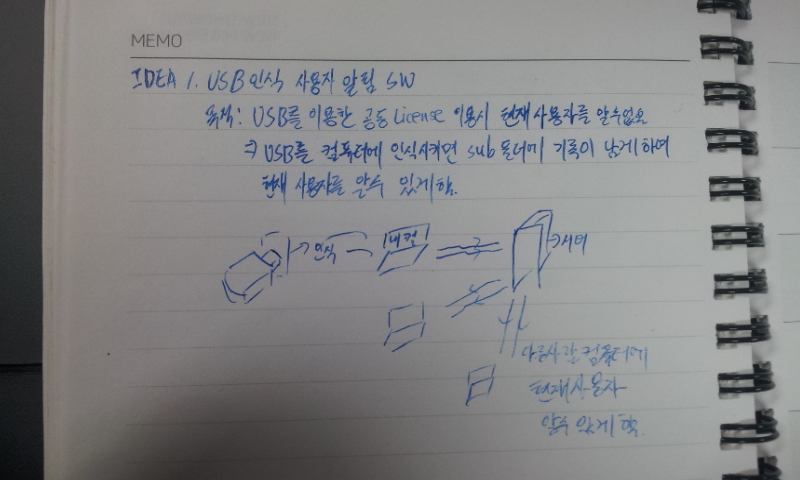 MEMO
IDEA 1. USB 인식 사용자 알림 SW
목적: USB를 이용한 공동 License 이용시 현재 사용자를 알수없오
⇒ USB를 컴퓨터에 인식시키면 sub 폴더에 기록이 남게하여
현재 사용자를 알수 있게함.
→ 인식
내컴
→서버
다른사람 컴퓨터에
현재사용자
알수 있게 함.